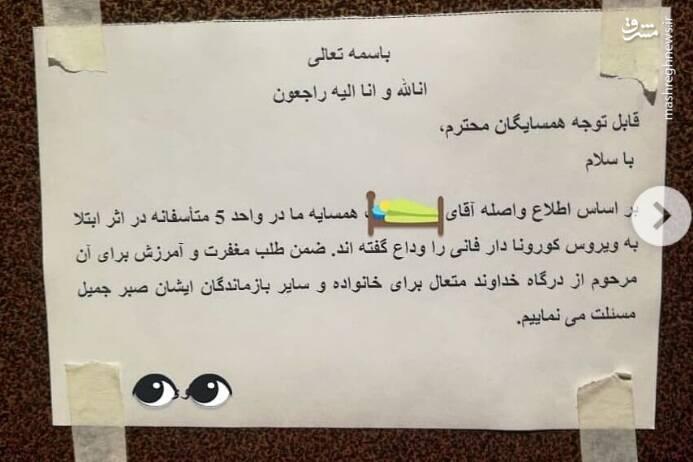 باسمه تعالی
انالله و انا الیه راجعون
قابل توجه همسایگان محترم،
با سلام
بر اساس اطلاع واصله آقای ، همسایه ما در واحد 5 متأسفانه در اثر ابتلا
به ویروس کورونا دار فانی را وداع گفته اند. ضمن طلب مغفرت و آمرزش برای آن
مرحوم از درگاه خداوند متعال برای خانواده و سایر بازماندگان ایشان صبر جمیل
مسئلت می نماییم.
مشرق
mashreghnews.ir